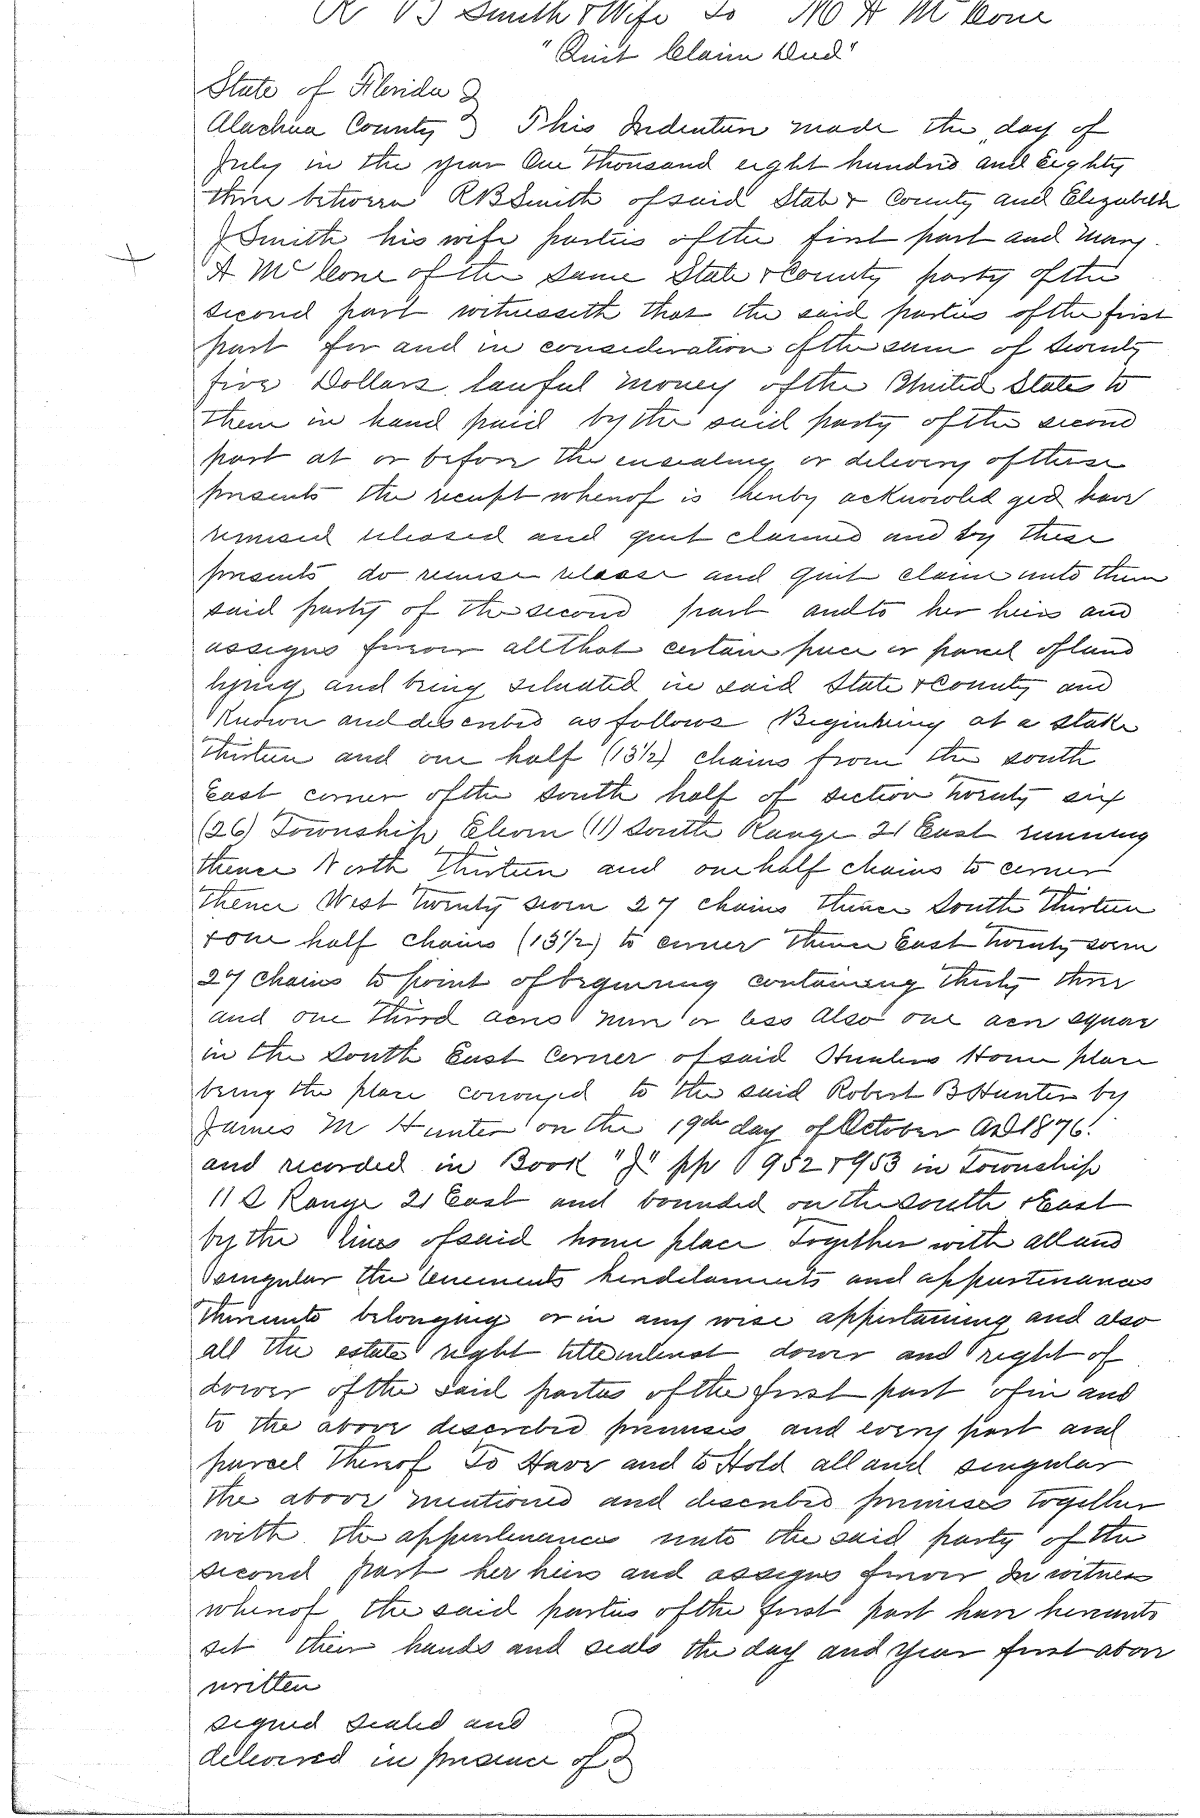 R B Smith & Wife to M A McCone
"Quit Claim Deed"
State of Florida }
Alachua County } This Indenture made the " day of
July in the year One Thousand eight hundred and Eighty
three between R B Smith of said State & County and Elizabeth
J Smith his wife parties of the first part and Mary
A McCone of the same State & County party of the
second part witnesseth that the said parties of the first
part for and in consideration of the sum of twenty
five Dollars lawful money of the United States to
them in hand paid by the said party of the second
part at or before the ensealing or delivery of these
presents the receipt whereof is hereby acknowledged have
remised released and quit claimed and by these
presents do remise release and quit claim unto them
said party of the second part and to her heirs and
assigns forever all that certain piece or parcel of land
lying and being situated in said State & County and
Known and described as follows Beginning at a stake
Thirteen and one half (13½) chains from the south
East corner of the South half of section Twenty six
(26) Township Eleven (11) South Range 21 East running
thence North Thirteen and one half chains to corner
Thence West Twenty seven 27 chains thence South Thirteen
& one half chains (13½) to corner thence East Twenty seven
27 chains to point of beginning containing Thirty three
and one third acres more or less Also one acre square
in the South East Corner of said Hunters Home place
being the place conveyed to the said Robert B Hunter by
James M Hunter on the 19th day of October AD 1876
and recorded in Book "J" pp 952 & 953 in Township
11 S Range 21 East and bounded on the south & East
by the lines of said home place Together with all and
singular the tenements hereditaments and appurtenances
thereunto belonging or in any wise appertaining and also
all the estate right title interest dower and right of
dower of the said parties of the first part of in and
to the above described premises and every part and
parcel thereof To Have and to Hold all and singular
the above mentioned and described premises together
with the appurtenances unto the said party of the
second part her heirs and assigns forever In witness
whereof the said parties of the first part have hereunto
set their hands and seals the day and year first above
written
signed sealed and
delivered in presence of }